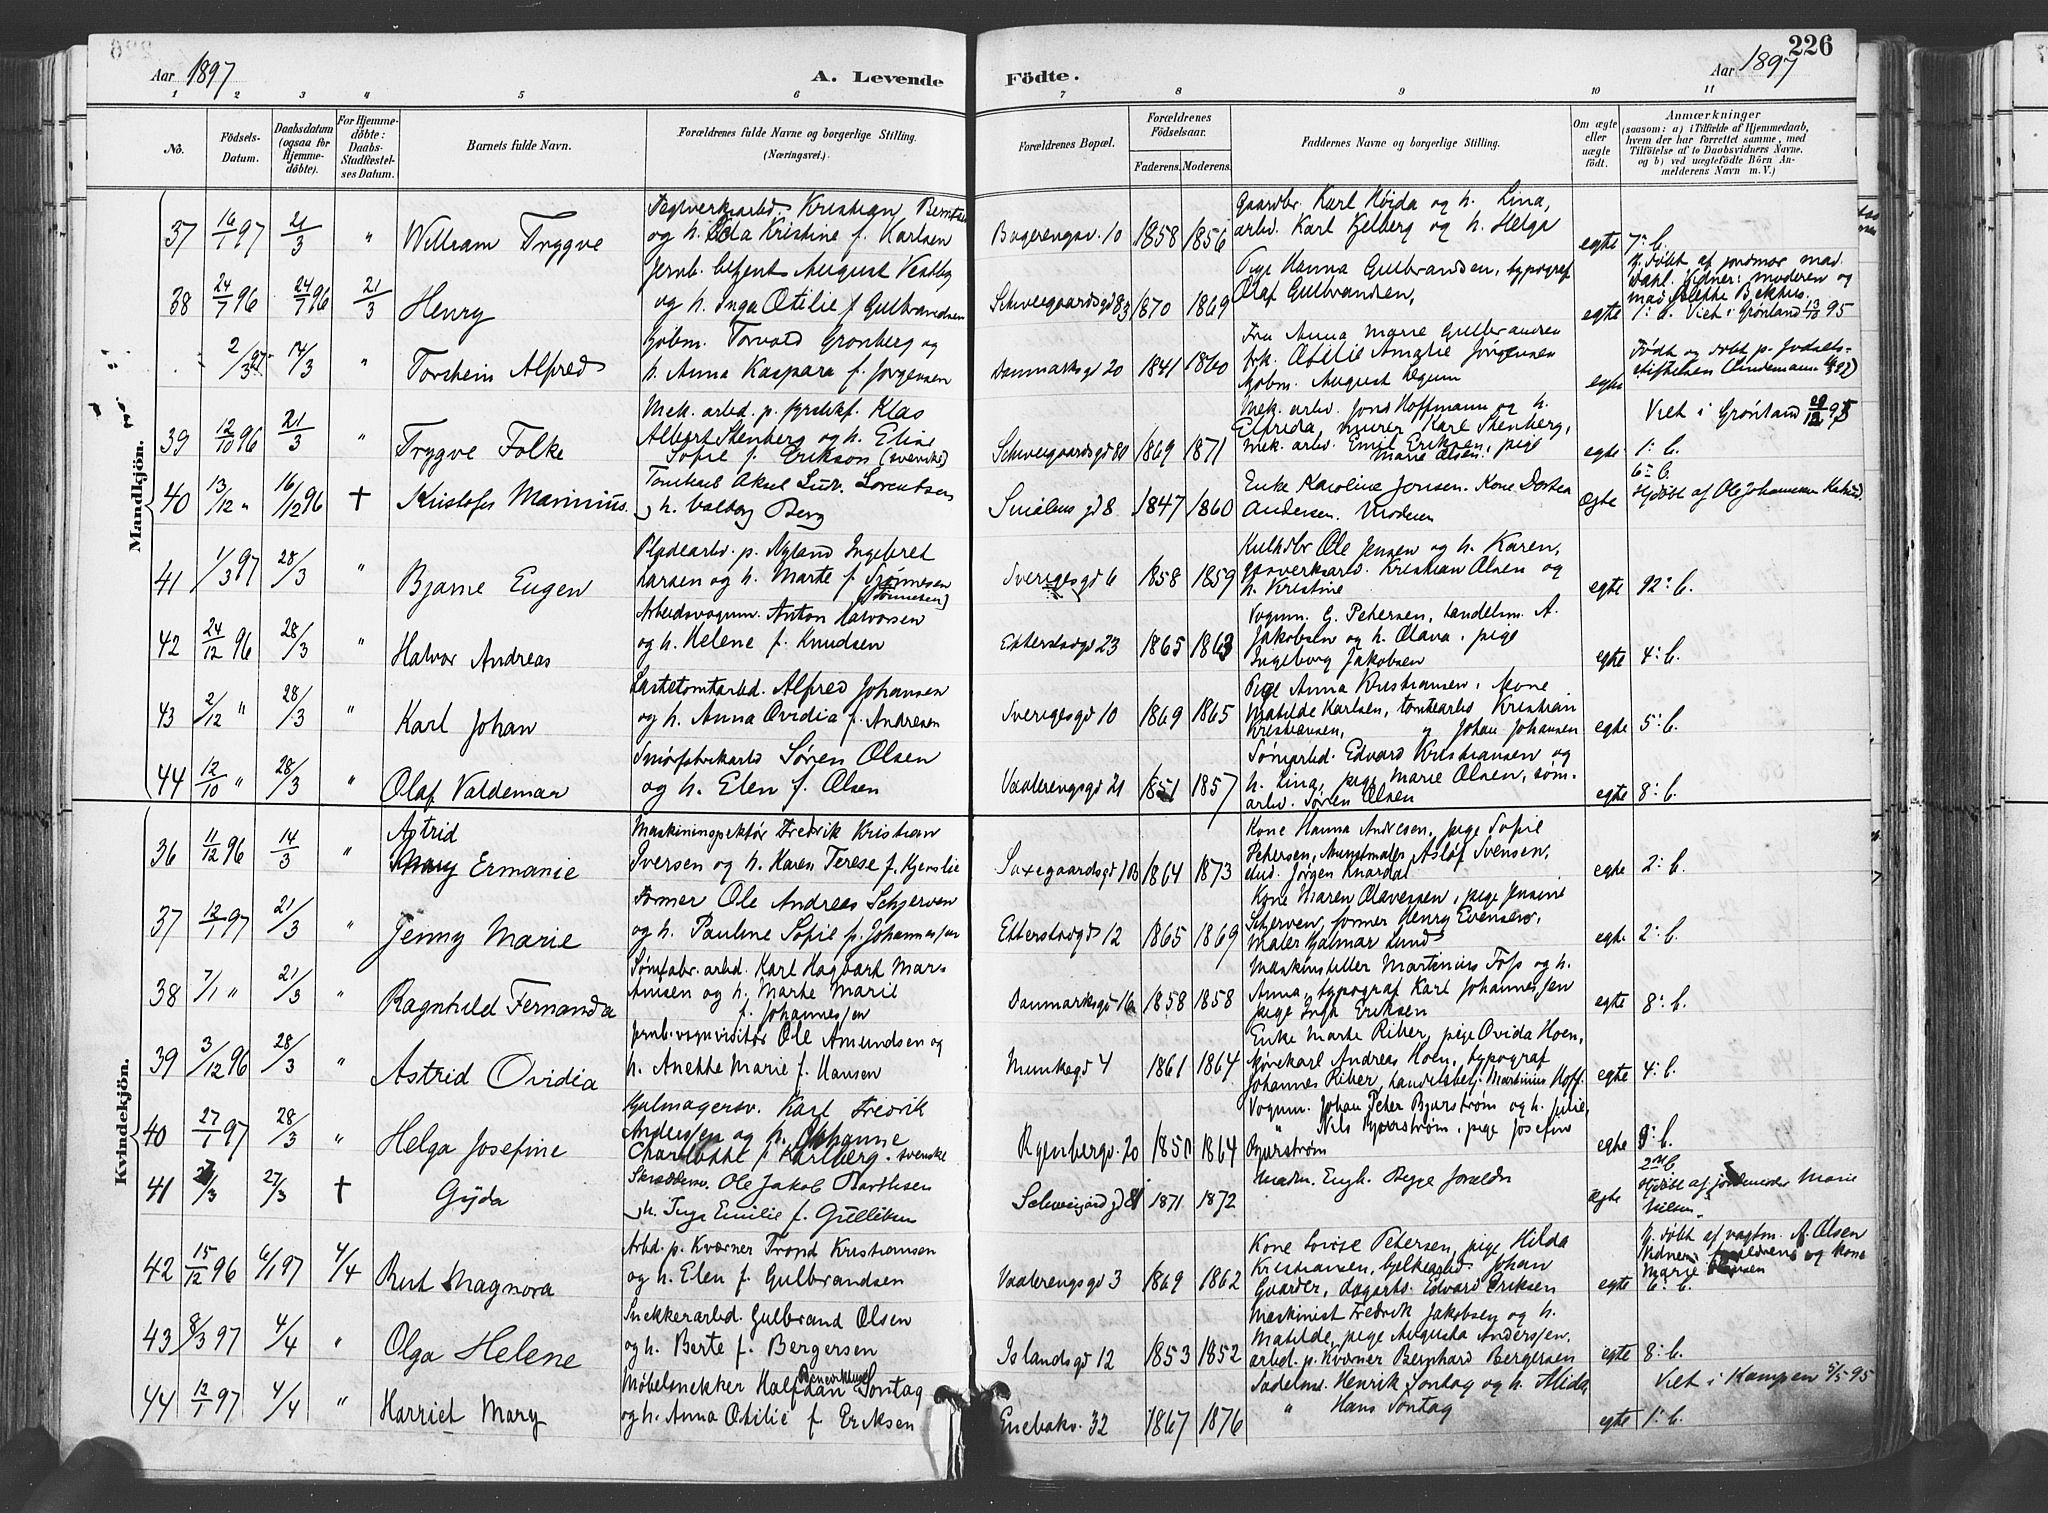 226
Aar 1897
A. Levende
Födte.
Aar 1897
1 2 3 4 5 6 7 8 9 10 11
No.
Födsels-
Datum.
Daabsdatum
(ogsaa for
Hjemme-
döbte).
For Hjemme-
döbte:
Daabs-
Stadfæstel-
ses Datum.
Barnets fulde Navn.
Forældrenes fulde Navne og borgerlige Stilling.
(Næringsvei.)
Forældrenes Bopæl.
Forældrenes
Födselsaar.
Faderens. Moderens.
Faddernes Navne og borgerlige Stilling.
Om ægte
eller
uægte
födt.
Anmærkninger
(saasom: a) i Tilfælde af Hjemmedaab,
hvem der har forrettet samme, med
Tilföielse af to Daabsvidners Navne,
og b) ved uægtefödte Börn An-
melderens Navn m. V.)
Mandkjön.
37 16/1 97 21/3 " William Trygve
Teglverksarbd. Kristian Berntsen
og h. Kristine f. Karlsen
10 1858 1856
Gaardbr. Karl Høida og h. Lina,
arbd. Karl Kjelberg og h. Helga
egte 7: b.
38 24/7 96 24/7 96 21/3 Henry
Jernb. betjent August Vestby
og h. Inga Otilie f. Gulbrandsen
Schweigaardsgd 83 1870 1869
Pige Hanna Gulbrandsen, typograf
Olaf Gulbrandsen,
egte
H. døbt af jordmor mad.
Dahl. Vidner: moderen og
1: b. Viet i Grønland 13/10 95
2/3 97 14/3 " Torstein Alfred
Kjøbm. Torvald Grønberg og
h. Anna Kaspara f. Jørgensen
Danmarksgd 20 1841 1860
Fru Anna Marie Gulbrandsen
frk. Otilie Amalie Jørgensen
Kjøbm. August Ugum
egte
Født og døbt p. Fødsels-
stiftelsen
39 12/10 96 21/3 " Trygve Folke
Mek. arbd. p. Klas
Albert Stenberg og h. Elise
Sofie f. Erikson (svenske)
Schweigaardsgd 80 1869 1871
Mek. arbd. Jons Hoffmann og h.
Elfrida, murer Karl Stenberg,
mek. arbd. Emil Eriksen, pige
Marie Olsen.
egte
Viet i Grønland 29/12 95
1: b.
40 13/12 " 16/12 96 † Kristofer Marinius.
Tomtearb Aksel Ludv. Lorentsen
h. Valborg Berg
Smålens gd 8 1847 1860
Enke Karoline Jonsen. Kone Dortea
Andersen. Moderen
Ægte
6= b.
Hjdøbt af Ole Johannsen
41 1/3 97 28/3 " Bjarne Eugen
Pladearbd. p. Nyland Ingebret
Larsen og h. Marte f. Tjønnesen
(Tønnesen)
Sverigesgd 6 1858 1859
Kulhdbr Ole Jensen og h. Karen,
gasverksarb. Kristian Olsen og
h. Kristine
egte 12: b.
42 24/12 96 28/3 " Halvor Andreas
Arbeidsvognm. Anton Halvorsen
og h. Helene f. Knudsen
Etterstadgd 23 1865 1863
Vognm. G. Petersen, handelsm. A.
Jakobsen og h. Olava, pige
Ingeborg Jakobsen
egte 4: b.
43 2/12 " 28/3 " Karl Johan
Lastetomtarbd. Alfred Johansen
og h. Anna Ovidia f. Andresen
Sverigesgd 10 1869 1865
Pige Anna Kristiansen, kone
Matilde Karlsen, tomtearb Kristian
Kristiansen, og Johan Johansen
egte 5: b.
44 12/10 " 28/3 " Olaf Valdemar
Smørfabrikarbd Søren Olsen
og h. Elen f. Olsen
Vaalerengsgd 21 1851 1857
Sømarbed. Edvard Kristiansen og
h. Lina, pige Marie Olsen, søm-
arbd. Søren Olsen
egte 8: b.
Kvindekjön.
36 11/12 96 14/3 " Astrid
Ermanie
Maskininspektør Fredrik Kristian
Iversen og h. Karen Terese f. Kjenslie
Saxegaardsgd 10B 1864 1873
Kone Hanna Andresen, pige Sofie
Petersen, Kunstmaler Asløf Svensen,
stud. Jørgen Knardal
egte 2: b.
37 12/1 97 21/3 " Jenny Marie
Former Ole Andreas Schjerven
og h. Pauline Sofie f. Johannessen
Etterstadgd 12 1865 1869
Kone Maren Olavessen, pige Jensine
Skjerven, former Henry Evensen,
Maler Hjalmar Lund
egte 2: b.
38 7/1 " 21/3 " Ragnhild Fernanda
Sømfabr. arbd. Karl Hagbart Mar-
tinsen og h. Marte Marie
f. Johannessen
Danmarksgd 16 1858 1858
Maskinstiller Martinius Foss og h.
Anna, typograf Karl Johannessen
pige Inga Eriksen
egte 8: b.
39 3/12 96 28/3 " Astrid Ovidia
Jernb. vognvisitør Ole Amundsen og
h. Anette Marie f. Hansen
Munkegd 4 1861 1864
Enke Marte Riber, pige Ovida Hoen,
Kjørekarl Andreas Hoen, typograf
Johannes Riber, handelsbetj. Martinius Hoff.
egte 4: b.
40 27/1 97 28/3 " Helga Josefine
Hjulmagersv. Karl Fredrik
Anderssen og h. Johanne
Charlotte f. Karlberg. svenske
Ryenbergv. 20 1850 1864
Vognm. Johan Peter Bjurstrøm og h. Julie,
" Nils Bjurstrøm, pige Josefine
Bjurstrøm
egte 9: b.
41 27/3 † Gyda
Skræddersv. Ole Jakob Barthsen
h. Inga Emilie f. Gulliksen
Schweigrd gd 81 1871 1872
Madm. Engh. Begge forældre
Ægte
2= b.
Hjdøbt af jordemoder Marie
Nilsen
42 15/12 96 6/1 97 4/4 Bert Magnora
Arbd. p. Kværner Trond Kristiansen
og h. Elen f. Gulbrandsen
Vaalerengsgd 3 1869 1862
Kone Lovise Petersen, pige Hilda
Kristiansen, Johan
Gaarder, dagarb. Edvard Eriksen
egte
H. døbt af vagtm. A. Olsen
Vidner: forældrene og kone
Marie
6: b.
43 8/3 97 4/4 " Olga Helene
Snekkerarbd. Gulbrand Olsen
og h. Berte f. Bergersen
Islandsgd 12 1853 1852
Maskinist Fredrik Jakobsen og h.
Matilde, pige Augusta Anderssen,
arbd. p. Kværner Bernhard Bergersen
egte 8: b.
44 12/1 97 4/4 " Harriet Mary
Møbelsnekker Halfdan Sontag
og h. Anna Otilie f. Eriksen
Enebakv. 32 1867 1876
Sadelm. Henrik Sontag og h. Alida
" Hans Sontag
egte
Viet i Kampen 5/5 95
1: b.